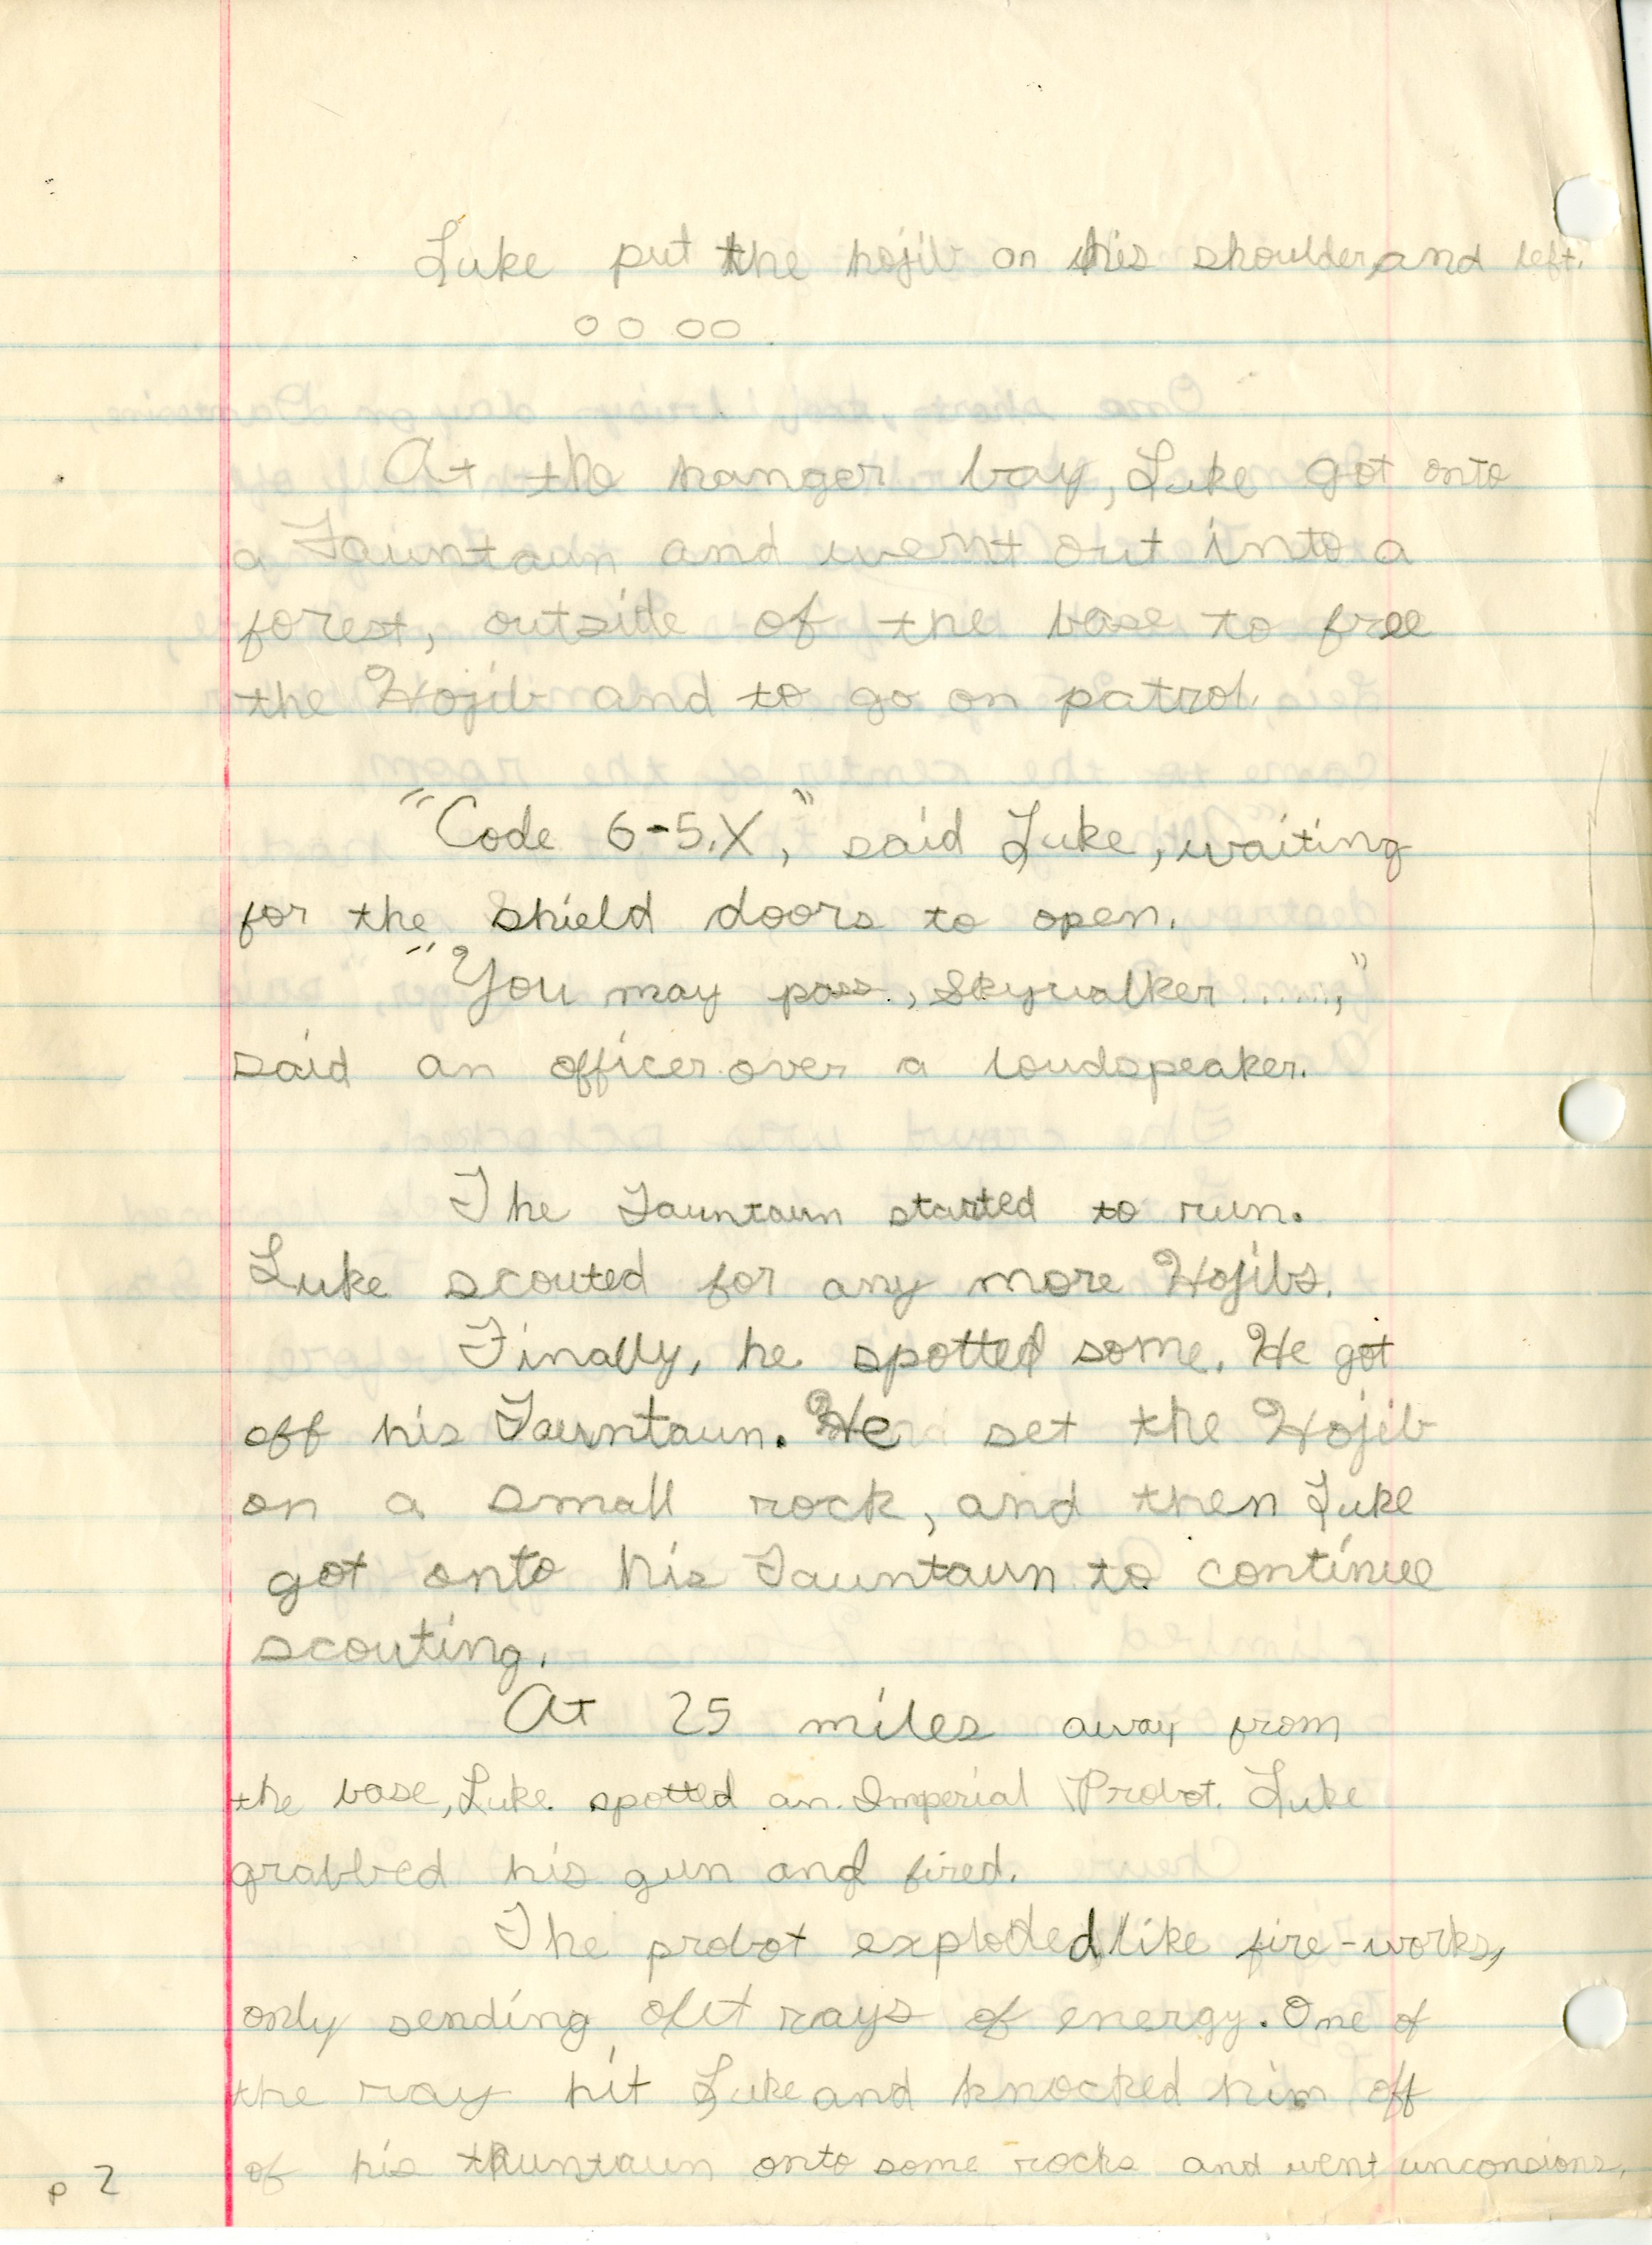 Luke put the hojib on his shoulder, and left.
o o o o
At the hanger bay, Luke got onto
a Tauntaun and went out into a
forest, outside of the base to free
the Hojib and to go on patrol.
"Code 6-5.X," said Luke, waiting
for the shield doors to open.
"You may pass, Skywalker ......,"
said an officer over a loudspeaker.
The Tauntaun started to run.
Luke scouted for any more Hojibs.
Finally, he spotted some. He got
off his Tauntaun. He set the Hojib
on a small rock, and then Luke
got onto his Tauntaun to continue
scouting.
At 25 miles away from
the base, Luke spotted an Imperial Probot. Luke
grabbed his gun and fired.
The probot exploded like fire-works,
only sending out rays of energy. One of
the ray hit Luke and knocked him off
of his thuntaun onto some rocks and went unconsions.
p 2